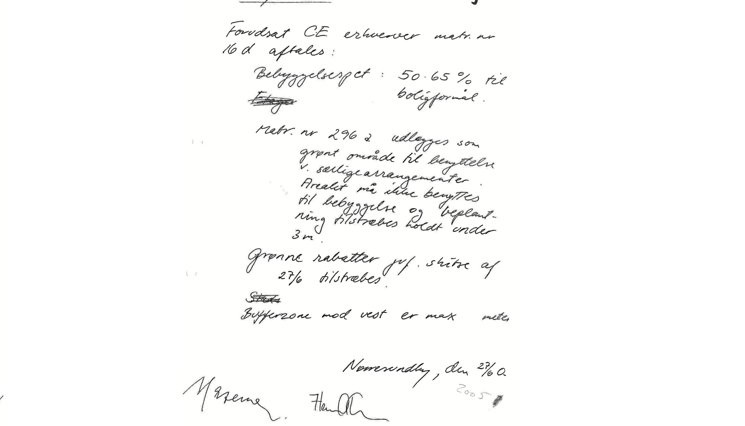 Forudsat CE erhverver matr. nr
16 d aftales :
Bebyggelsespct : 50-65 % til
boligformål.
Matr. nr 296 a udlægges som
grønt område til benyttelse
v. særlige arrangementer.
Arealet må ikke benyttes
til bebyggelse og beplant-
ning tilstræbes holdt under
3 m.
Grønne rabatter jvf. skitse af
27/6 tilstræbes.
Bufferzone mod vest er max meter
Nørresundby, den 27/6 0
2005